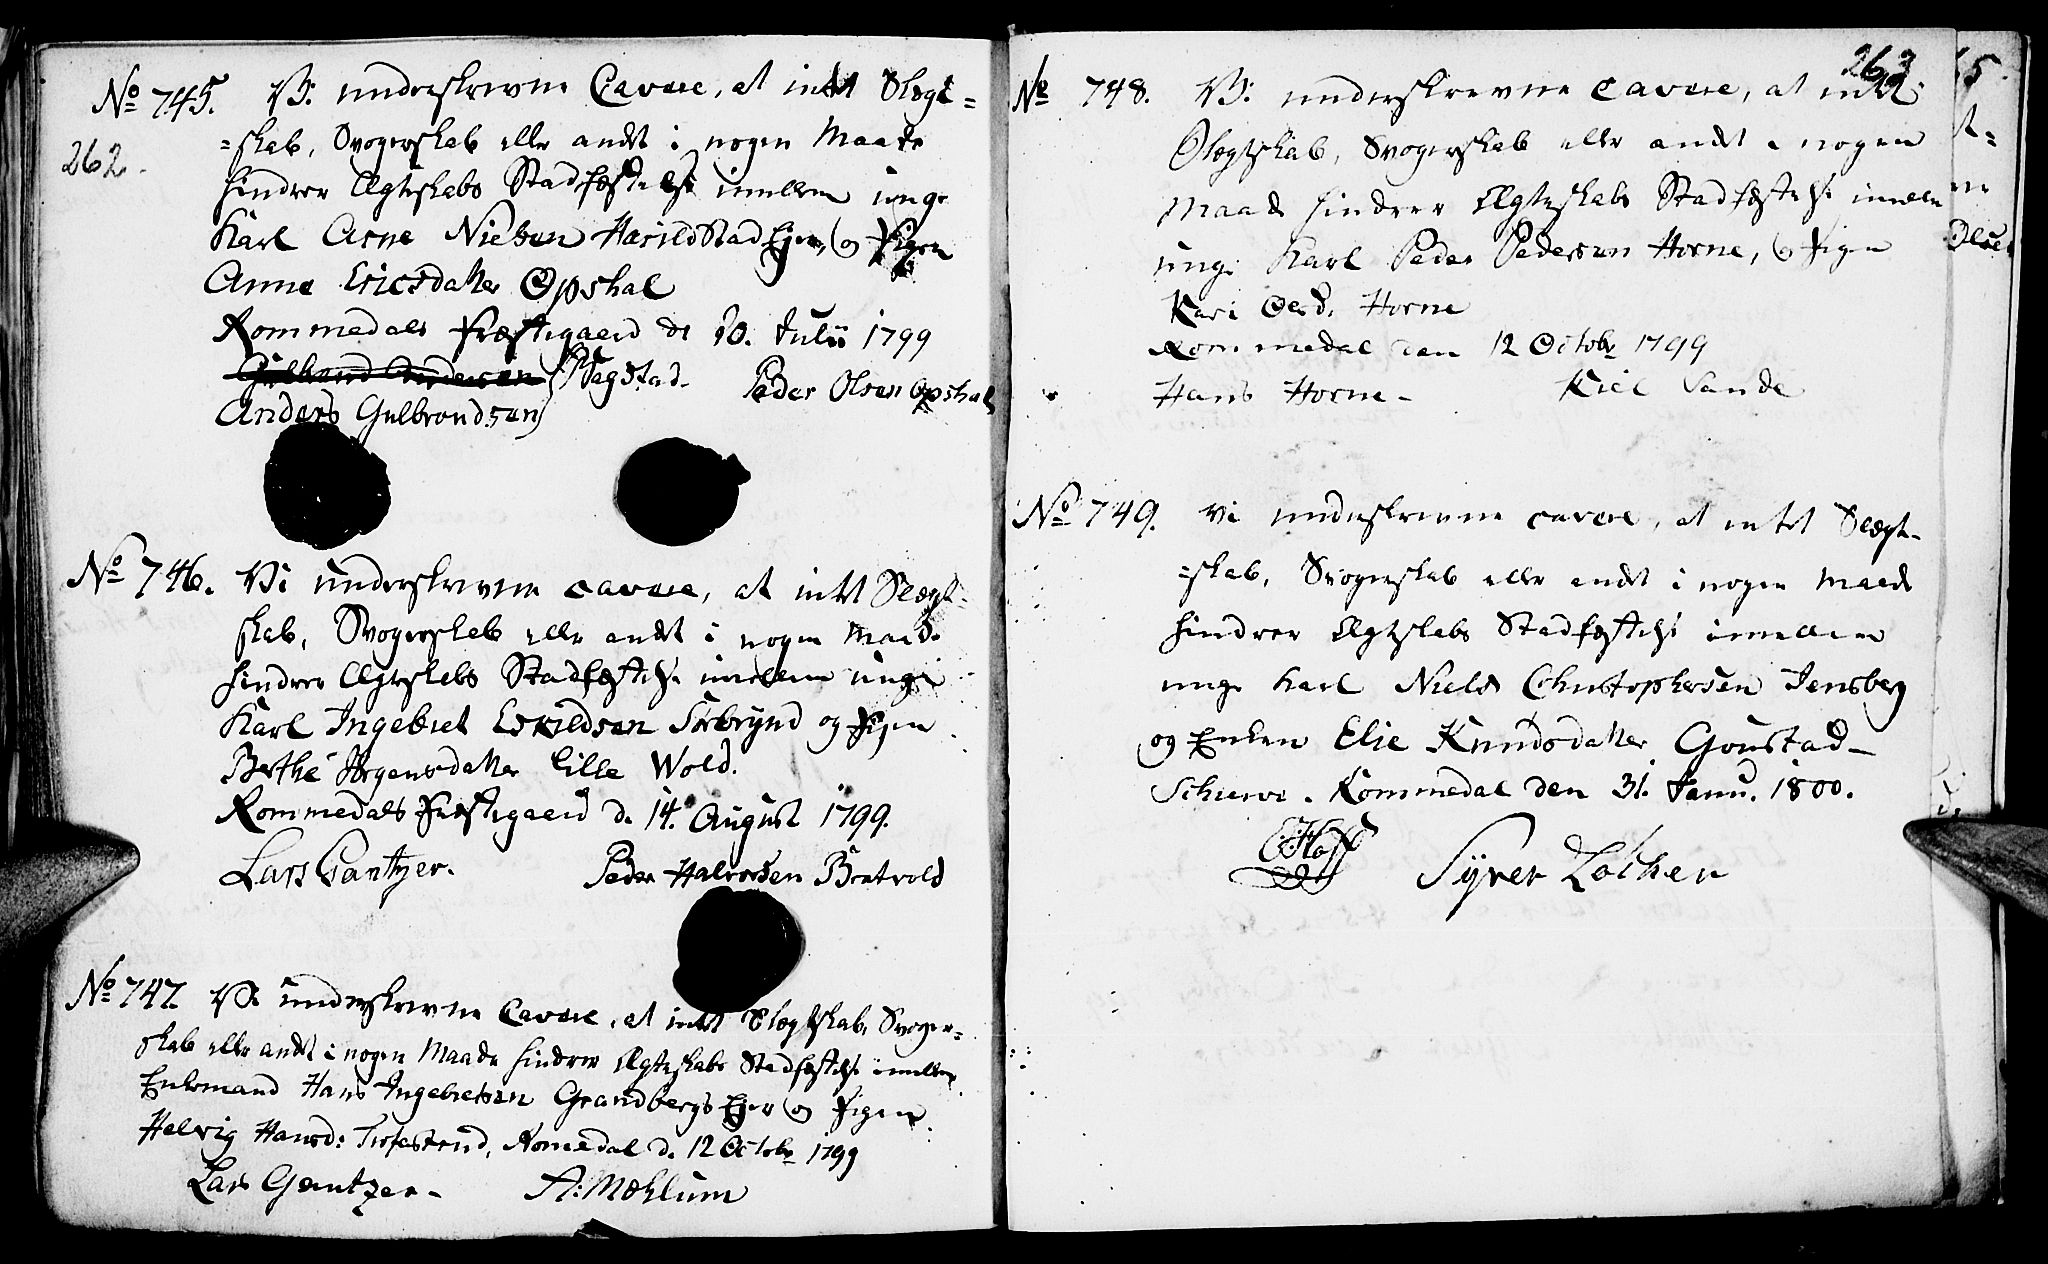 262.
No 745. Vi underskrevne Cavere, at intet Slægt=
=skab, Svogerskab eller andet i nogen Maade
hindrer Ægteskabs Stadfæstelse imellem unge
Karl Arne Nielsen Harildstad Ejer, og Pigen
Anne Ericsdatter Opshal
Rommedals Præstegaard de 10. Julii 1799
Gulbrand Andersen Bagstad. Peder Olsen Opshal
Anders Gulbrondsen
No 746. Vi underskrevne cavere, at intet Slægt-
skab, Svogerskab eller andet i nogen Maade
hindrer Ægteskabs Stadfæstelse imellem unge
Karl Ingebret Eskildsen Sørbrynd og Pigen
Berthe Jørgensdatter Lille Wold.
Rommedals Præstegaard d. 14. August 1799.
Lars Gantzer. Peder Halvorsen Brotvold
No 747. Vi underskrevne Cavere, at intet Slægtskab, Svoger=
skab eller andet i nogen Maade hindrer Ægteskabs Stadfæstelse imellem
Enkemand Hans Ingebretsen Grandbergs Ejer og Pigen
Helvig Hansd: Romedal d. 12 Octobr 1799
Lars Gantzer- A: Mæhlum
263
No 748. Vi underskrevne Cavere, at intet
Slægtskab, Svogerskab eller andet i nogen
Maade hindrer Ægteskabs Stadfæstelse imellem
unge Karl Peder Pedersen Horne, og Pigen
Kari Olsd. Horne
Rommedal den 12 Octobr 1799
Hans Horne- Kiel Sande
No 749. Vi underskrevne cavere, at intet Slægt-
=skab, Svogerskab eller andet i nogen Maade
hindrer Ægteskabs Stadfæstelse imellem
unge Karl Niels Christophersen Jensberg
og Enken Elie Knudsdatter Goustad-
Rommedal den 31. Janu. 1800.
C: Hoff Syver Løchen